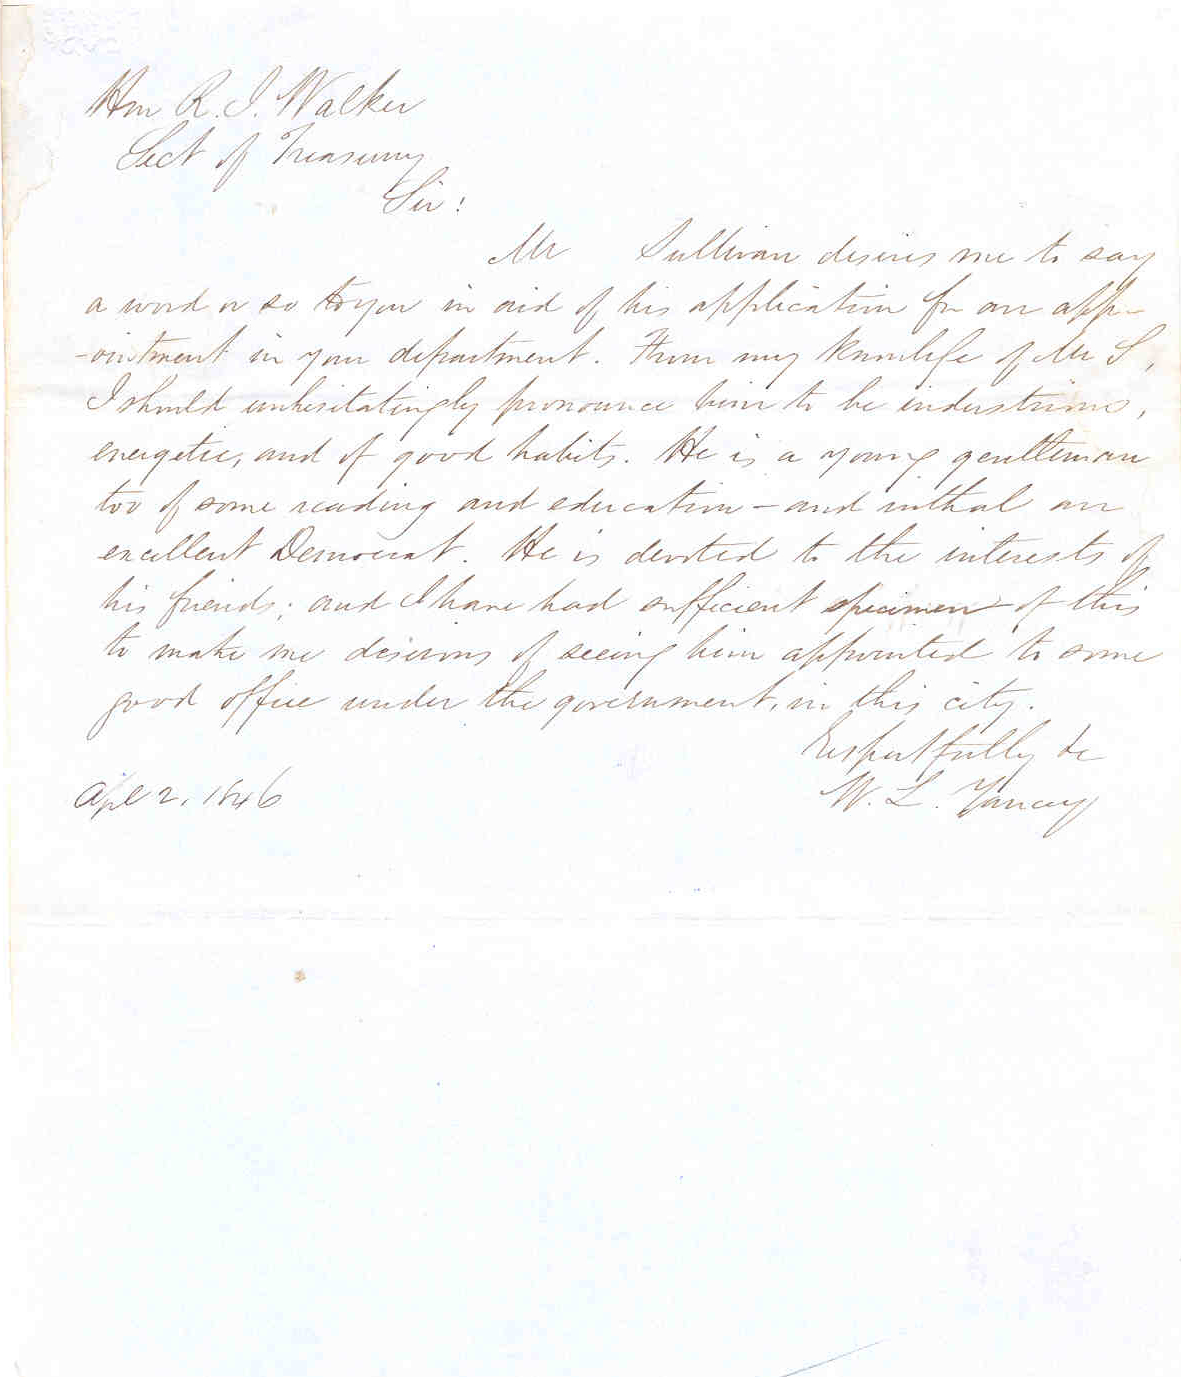 Hon R. J. Walker
Sect of Treasury
Sir!
Mr Sullivan desires me to say
a word or so to you in aid of his application for an app-
-ointment in your department. From my knowlege of Mr S,
I should unhesitatingly pronounce him to be industrious,
energetic, and of good habits. He is a young gentleman
too of some reading and education - and withal an
excellent Democrat. He is devoted to the interests of
his friends; and I have had sufficient specimen of this
to make me desirous of seeing him appointed to some
good office under the government, in this city.
Respectfully &c
W. L. Yancey
Apl 2, 1846